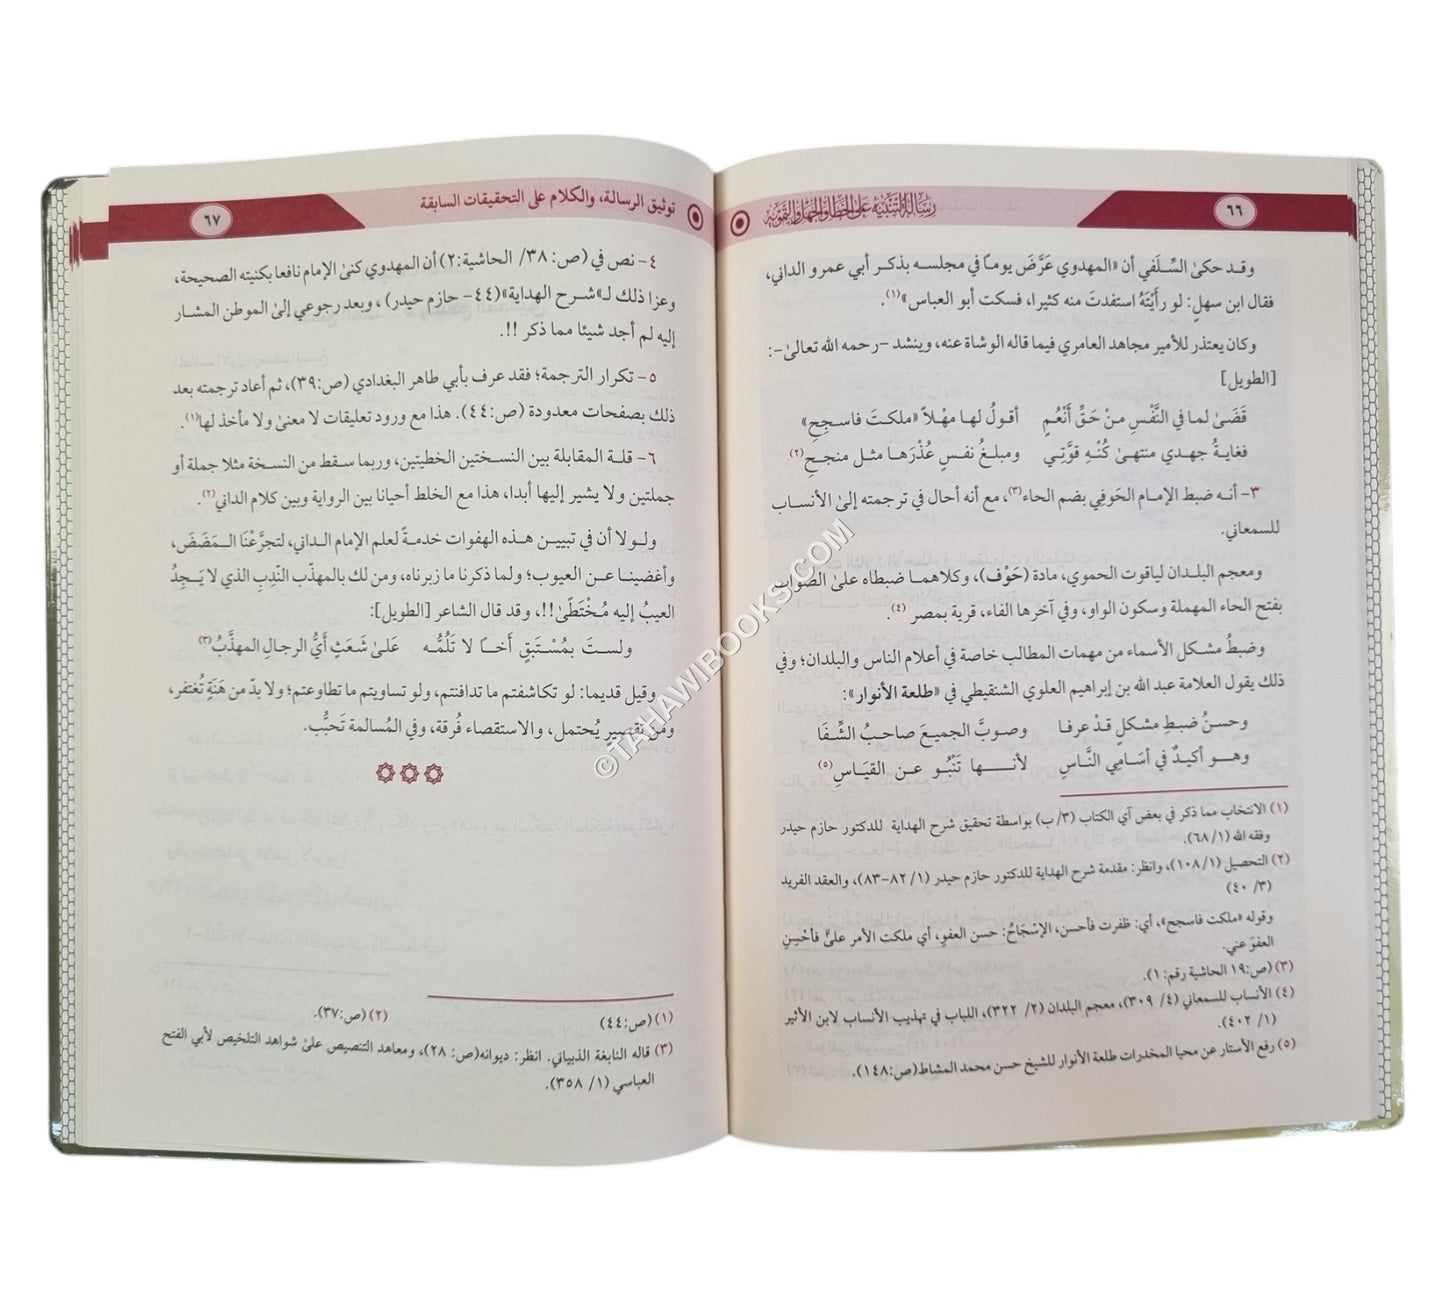 ٦٦
رسالة التنبيه على الخطأ والجهل والتمويه
وقد حكىٰ السِّلَفي أن «المهدوي عَرَّضَ يوماً في مجلسه بذكر أبي عمرو الداني،
فقال ابن سهلٍ: لو رأَيْتَهُ استفدتَ منه كثيرا، فسكت أبو العباس»(١).
وكان يعتذر للأمير مجاهد العامري فيما قاله الوشاة عنه، وينشد -رحمه الله تعالىٰ-:
[الطويل]
قَضَىٰ لما في النَّفْسِ مـنْ حَقِّ أَنْعُمٍ أقولُ لهـا مهْلاً «ملكتَ فاسـجِحِ»
فغايةُ جهـدي منتهىٰ كُنْهِ قوَّتِـي ومبلـغُ نفـسٍ عُذْرَهـا مثـل منجـحِ(٢)
٣- أنـه ضبط الإمـام الحَوفِي بضم الحاء(٣)، مع أنه أحال في ترجمته إلىٰ الأنساب
للسمعاني.
ومعجم البلـدان لياقوت الحموي، مادة (حَوْف)، وكلاهمـا ضبطاه علىٰ الصَّواب
بفتح الحاء المهملة وسكون الواو، وفي آخرها الفاء، قرية بمصر(٤).
وضبطُ مشـكل الأسماء من مهمات المطالب خاصة في أعلام الناس والبلدان؛ وفي
ذلك يقول العلامة عبد الله بن إبراهيم العلوي الشنقيطي في «طلعة الأنوار»:
وحسـنُ ضبـطِ مشكلٍ قـدْ عرفـا وصوبَّ الجميـعَ صاحبُ الشِّفَـا
وهـو أكيـدٌ في أسَـامِي النَّـاسِ لأنـهـا تَنْبُـو عـن القيَـاسِ(٥)
(١) الانتخاب مما ذكر في بعض آي الكتاب (٣/ ب) بواسطة تحقيق شرح الهداية للدكتور حازم حيدر
وفقه الله (١/ ٦٨).
(٢) التحصيل (١/ ١٠٨)، وانظر: مقدمة شرح الهداية للدكتور حازم حيدر (١/ ٨٢-٨٣)، والعقد الفريد
(٣/ ٤٠)
وقوله «ملكت فاسجح»، أي: ظفرت فأحسن، الإسْجَاحُ: حسن العفوِ، أي ملكت الأمر علىَّ فأحْسِنِ
العفوَ عني.
(٣) (ص:١٩ الحاشية رقم: ١).
(٤) الأنساب للسمعاني (٤/ ٣٠٩)، معجم البلدان (٢/ ٣٢٢)، اللباب في تهذيب الأنساب لابن الأثير
(١/ ٤٠٢).
(٥) رفع الأستار عن محيا المخدرات طلعة الأنوار للشيخ حسن محمد المشاط(ص:١٤٨).
توثيق الرسالة، والكلام على التحقيقات السابقة
٦٧
٤- نص في (ص: ٣٨/ الحاشية:٢) أن المهدوي كنىٰ الإمام نافعا بكنيته الصحيحة،
وعزا ذلك لـ«شرح الهداية»(٤٤- حازم حيدر) ، وبعد رجوعي إلىٰ الموطن المشـار
إليه لم أجد شيئا مما ذكر !!.
٥- تكرار الترجمة؛ فقد عرف بأبي طاهر البغدادي (ص:٣٩)، ثم أعاد ترجمته بعد
ذلك بصفحات معدودة (ص:٤٤). هذا مع ورود تعليقات لا معنىٰ ولا مأخذ لها(١).
٦- قلـة المقابلة بين النسـختين الخطيتين، وربما سـقط من النسـخة مثلا جملة أو
جملتين ولا يشير إليها أبدا، هذا مع الخلط أحيانا بين الرواية وبين كلام الداني(٢).
ولـولا أن في تبييـن هـذه الهفوات خدمـةً لعلم الإمام الـداني، لتجرَّعْنَا الـمَضَضَ،
وأغضينـا عـن العيوب؛ ولما ذكرنا ما زبرناه، ومن لك بالمهذّب النّدِبِ الذي لا يَـجِدُ
العيبُ إليه مُخْتَطًى!!، وقد قال الشاعر [الطويل]:
ولسـتَ بمُسْـتَبَقٍ أَخـاً لا تَلُمُّـه عَلـىٰ شَعَثٍ أيُّ الرجالِ المهذَّبُ(٣)
وقيل قديما: لو تكاشفتم ما تدافنتم، ولو تساويتم ما تطاوعتم؛ ولا بدّ من هَنَةٍ تُغتفر،
ومن تقصير يُحتمل، والاستقصاء فُرقة، وفي المُسالمة تَحبُّب.
(١) (ص:٤٤)
(٢) (ص:٣٧).
(٣) قاله النابغة الذبياني. انظر: ديوانه(ص: ٢٨)، ومعاهد التنصيص علىٰ شواهد التلخيص لأبي الفتح
العباسي (١/ ٣٥٨).
©TAHAWIBOOKS.COM